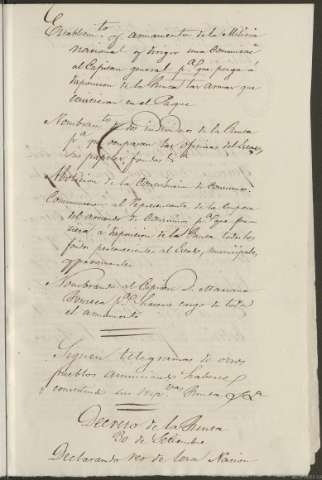 Establecim.to y armamento de la Milicia
nacional y dirigir una comunicac.
al Capitan general p.a q.e ponga á
disposicion de la Junta las armas que
tuviera en el Parque
Nombram.to de dos individuos de la Junta
p.a q.e las oficinas del
Abolicion de la Contribucion de Consumos
Comunicacion al Representante de la Empresa
del arriendo de Consumos p.a q.e
á disposicion de la Junta todos los
fondos pertenecientes al Estado, municipales,
y particulares
Nombrando al Capitan D. Mariano
Fonseca p.a hacerse cargo de todo
el armamento
Siguen telegramas de otros
pueblos anunciando haberse
constituido sus resp.vas Juntas &.a
Decreto de la Junta
30 de Setiembre
Declarando reo de lesa Nacion